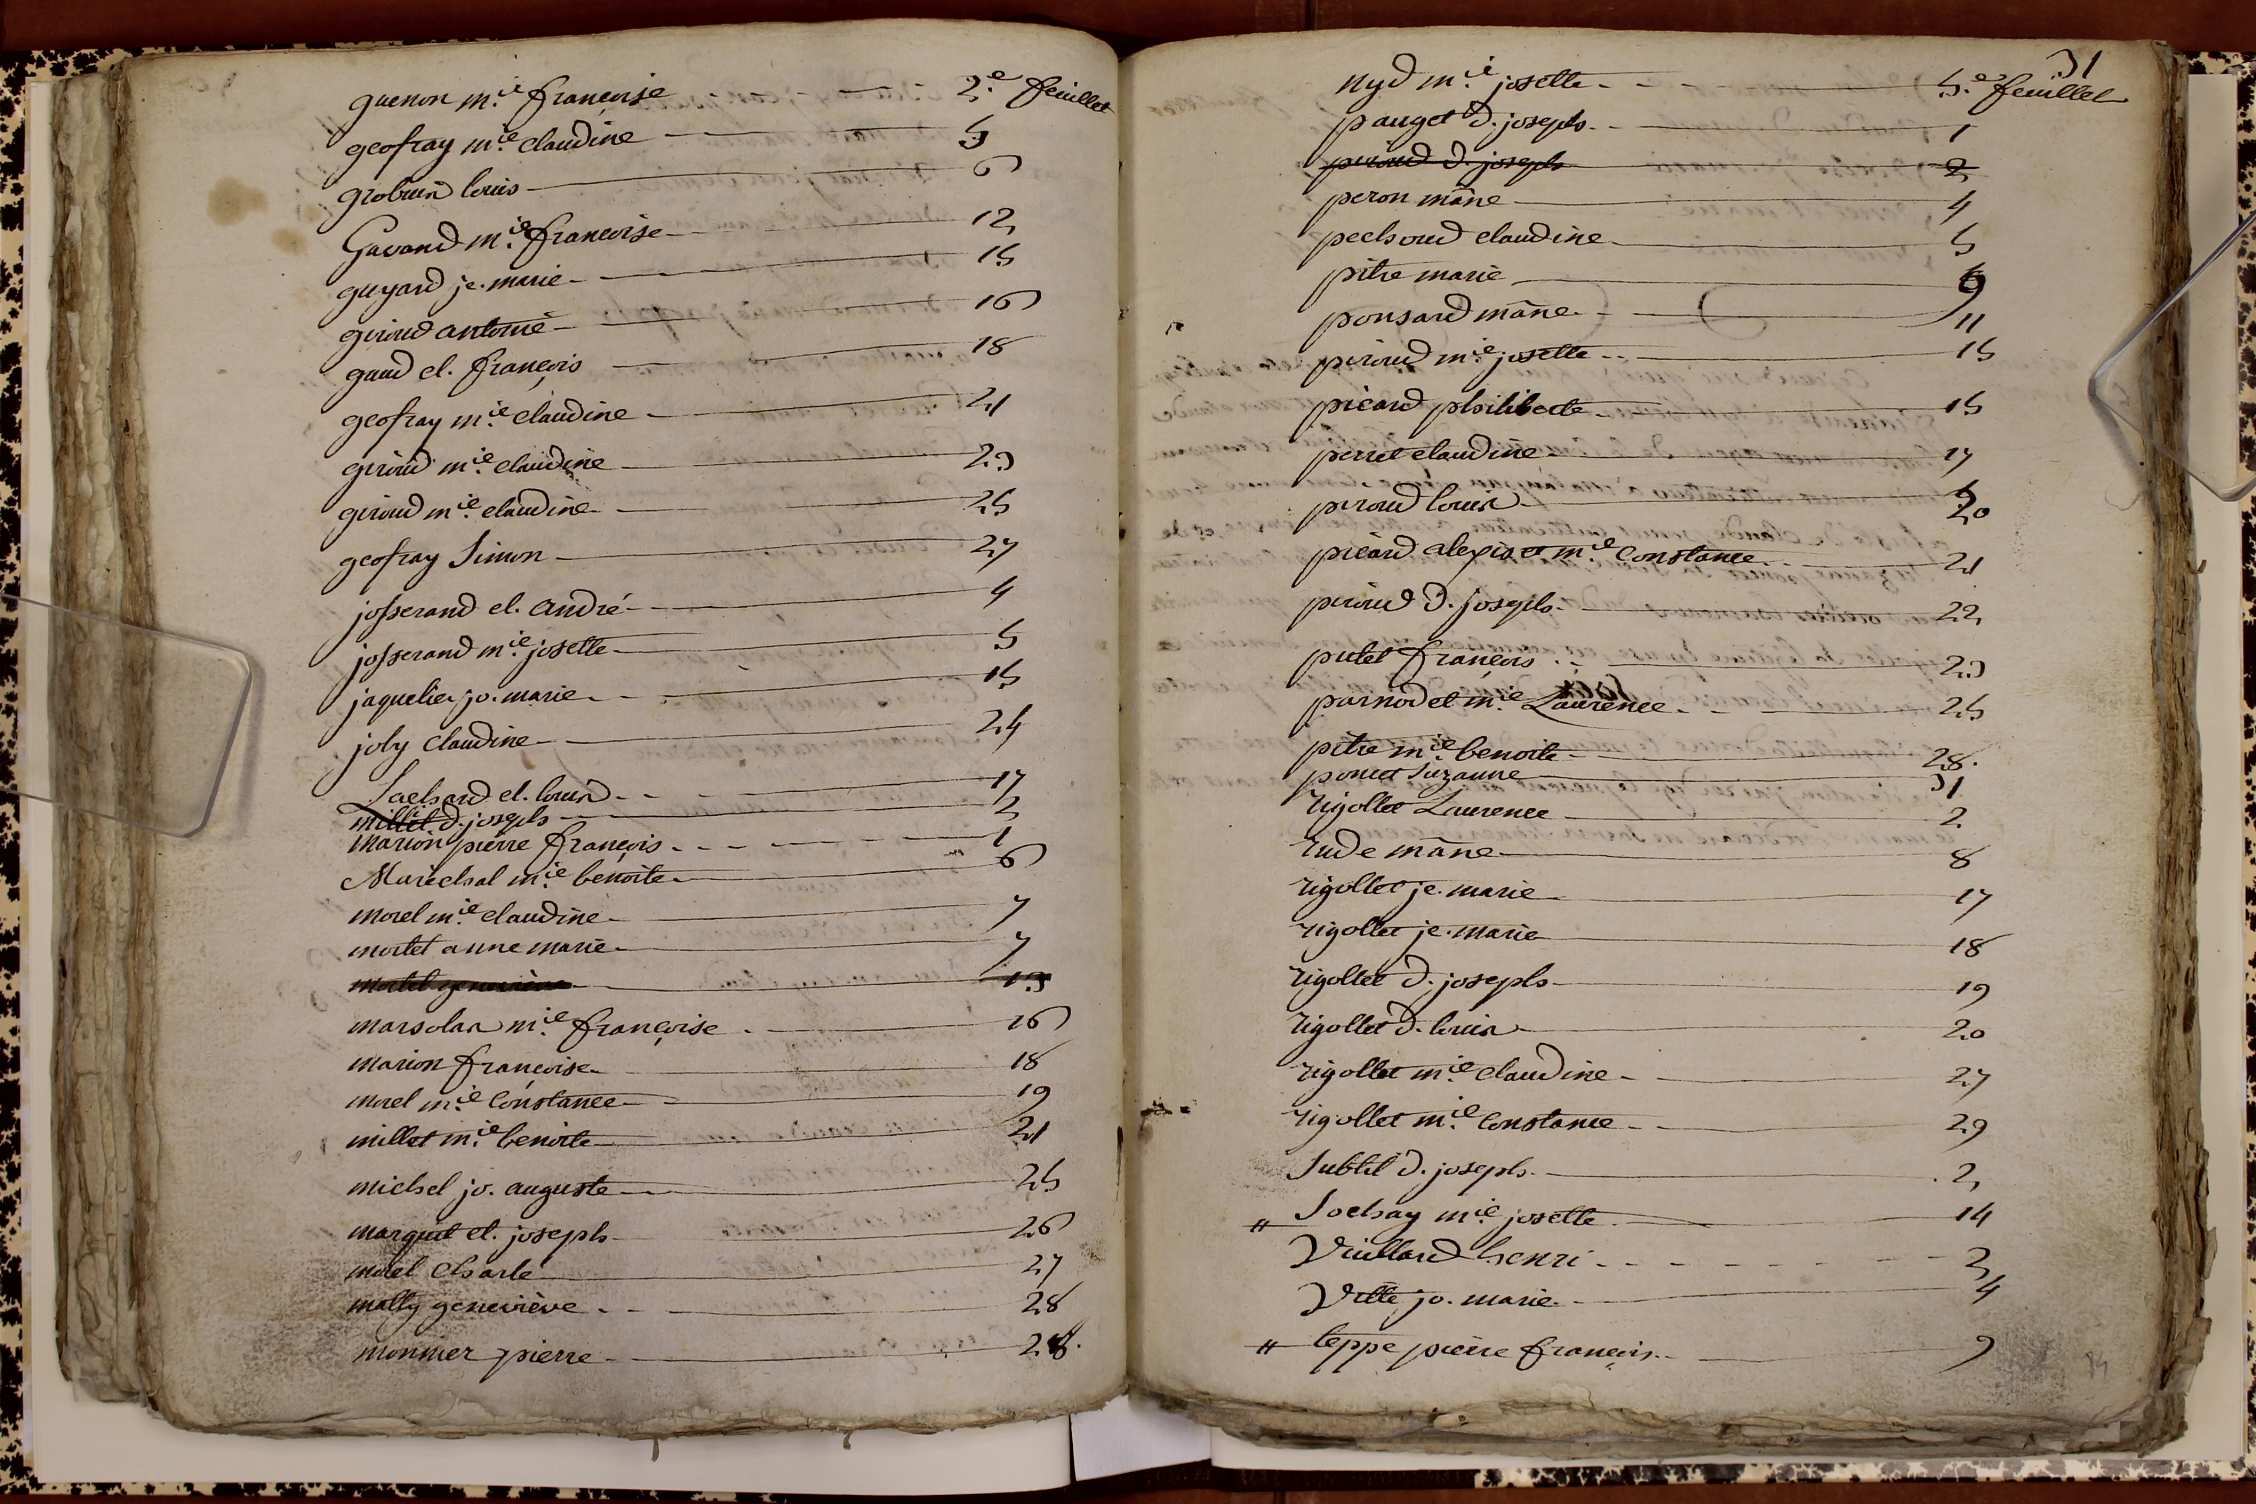 guenon m.ie françoise — 2.e feuillet
geofray m.ie claudine — 3
grobuis louis — 6
Gavand m.ie francoise — 12
guyard je. marie — 15
giroud antoine — 16
gaud cl. françois — 18
geofray m.ie claudine — 21
giroud m.ie claudine — 23
giroud m.ie claudine — 25
geofray Simon — 27
josserand cl. andré — 4
josserand m.ie josette — 5
jaquelier jo. marie — 15
joly claudine — 24
Lachard cl. louis — 17
millet d. joseph — 2
marion pierre françois — 1
Maréchal m.ie benoite — 6
morel m.ie claudine — 7
mortel anne marie — 7
mortel genevieve — 13
marsolas m.ie françoise — 16
marion françoise — 18
morel m.ie Constance — 19
millet m.ie benoite — 21
michel jo. auguste — 25
marquet cl. joseph — 26
morel charle — 27
matty geneviève — 28
monnier pierre — 28.
31
nyd m.ie josette — 5.e feuillet
pauget d. joseph — 1
piroud d. joseph — 2
peron mâne — 4
pechoud claudine — 5
pitre marie — 9
ponsard mâne — 11
piroud m.ie josette — 15
picard philiberte — 15
perret claudine — 17
piroud louis — 20
picard alexis et m.ie Constance — 21
piroud d. joseph — 22
putet françois — 23
parnodet m.ie Laurence — 25
pitre m.ie benoite — 28.
poncet Suzanne — 31
rigollet Laurence — 2
rude mâne — 8
rigollet je. marie — 17
rigollet je. marie — 18
rigollet d. joseph — 19
rigollet d. louis — 20
rigollet m.ie claudine — 27
rigollet m.ie Constance — 29
Subtil d. joseph — 2
" Sochay m.ie josette — 14
Vuillard henri — 2
Vitte jo. marie — 4
" teppe pierre françois — 9